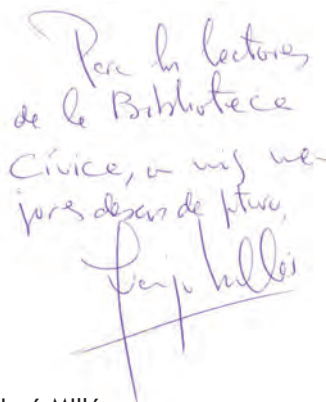 Para los lectores
de la Biblioteca
Cívica, con mis me-
jores deseos de futuro,